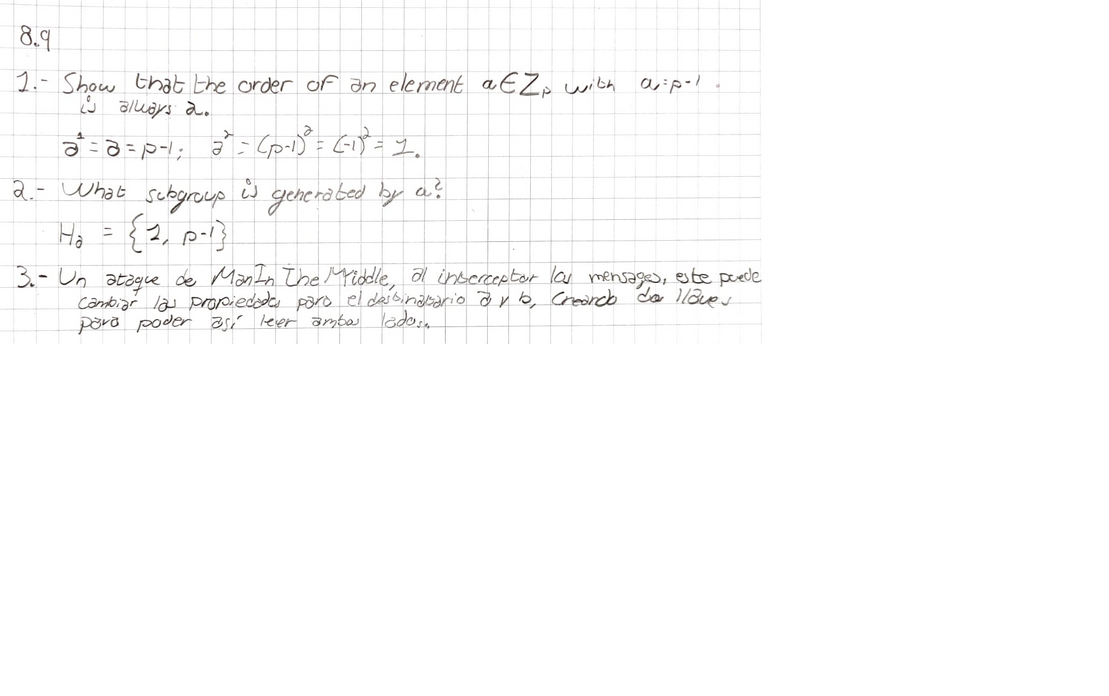 8.9
1.- Show that the order of an element a∈Zp with a=p-1.
is always 2.
a¹=a=p-1; a²=(p-1)²=(-1)²=1.
2.- What subgroup is generated by a?
Ha = {1, p-1}
3.- Un ataque de ManIn The Middle, al interceptar los mensages, este puede
cambiar las propiedades para el destinatario a y b, Creando dos llaves
para poder así leer ambos lados.